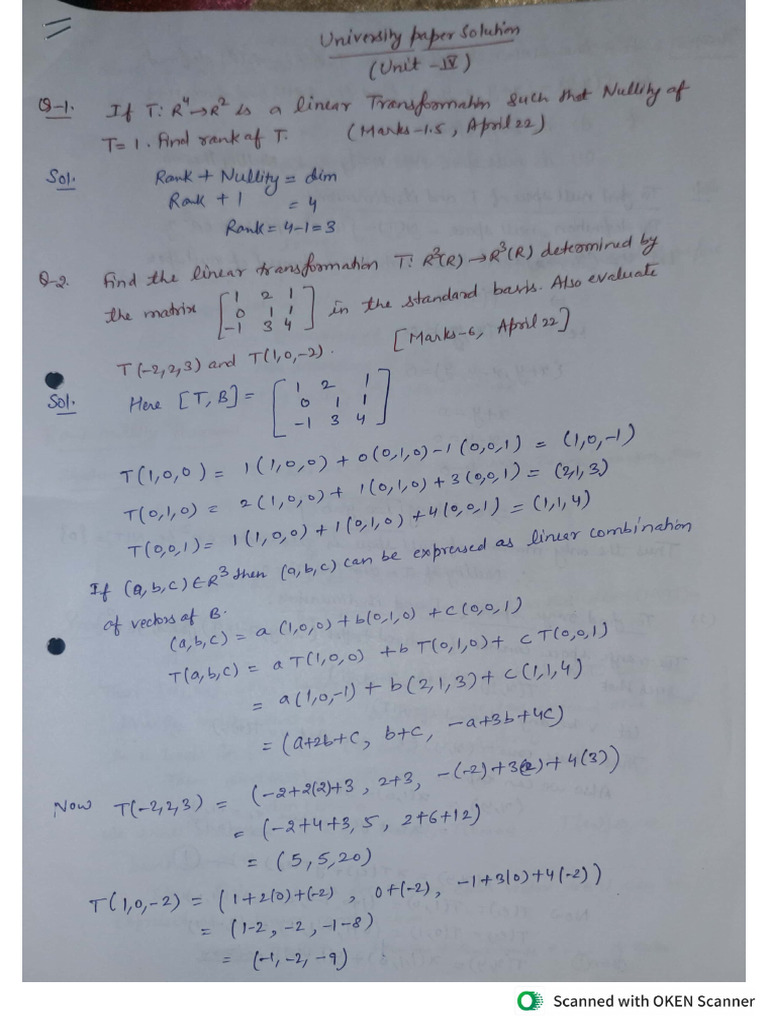 University paper Solution
(Unit - IV)
Q-1. If T: R⁴→R² is a linear Transformation such that Nullity of
T=1. Find rank of T. (Marks-1.5, April 22)
Sol. Rank + Nullity = dim
Rank + 1 = 4
Rank = 4-1=3
Q-2. Find the linear transformation T: R³(R) → R³(R) determined by
the matrix [1 2 1
0 1 1
-1 3 4] in the standard basis. Also evaluate
T(-2,2,3) and T(1,0,-2). [Marks-6, April 22]
Sol. Here [T, B] = [1 2 1
0 1 1
-1 3 4]
T(1,0,0) = 1(1,0,0) + 0(0,1,0) -1(0,0,1) = (1,0,-1)
T(0,1,0) = 2(1,0,0) + 1(0,1,0) + 3(0,0,1) = (2,1,3)
T(0,0,1) = 1(1,0,0) + 1(0,1,0) + 4(0,0,1) = (1,1,4)
If (a,b,c) ∈ R³ then (a,b,c) can be expressed as linear combination
of vectors of B.
(a,b,c) = a(1,0,0) + b(0,1,0) + c(0,0,1)
T(a,b,c) = a T(1,0,0) + b T(0,1,0) + c T(0,0,1)
= a(1,0,-1) + b(2,1,3) + c(1,1,4)
= (a+2b+c, b+c, -a+3b+4c)
Now T(-2,2,3) = (-2+2(2)+3, 2+3, -(-2)+3(2)+4(3))
= (-2+4+3, 5, 2+6+12)
= (5,5,20)
T(1,0,-2) = (1+2(0)+(-2), 0+(-2), -1+3(0)+4(-2))
= (1-2, -2, -1-8)
= (-1,-2,-9)
Scanned with OKEN Scanner